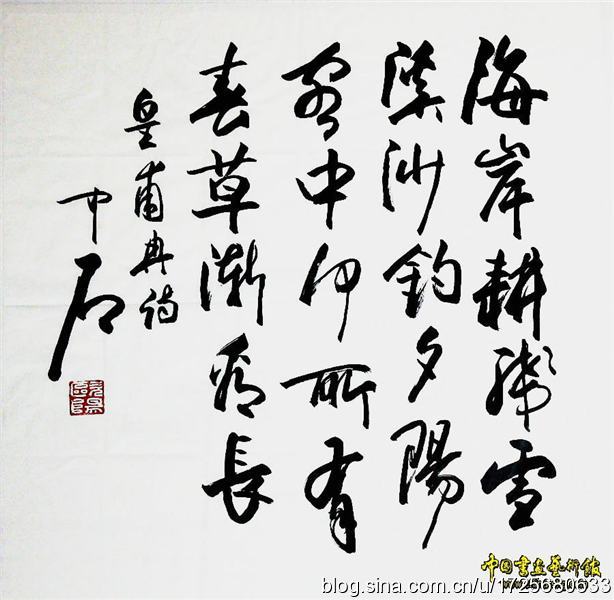 海岸耕殘雪
溪沙釣夕陽
家中何所有
春草漸看長
皇甫冉詩
中石
中国書畫藝術館
blog.sina.com.cn/u/1725680633